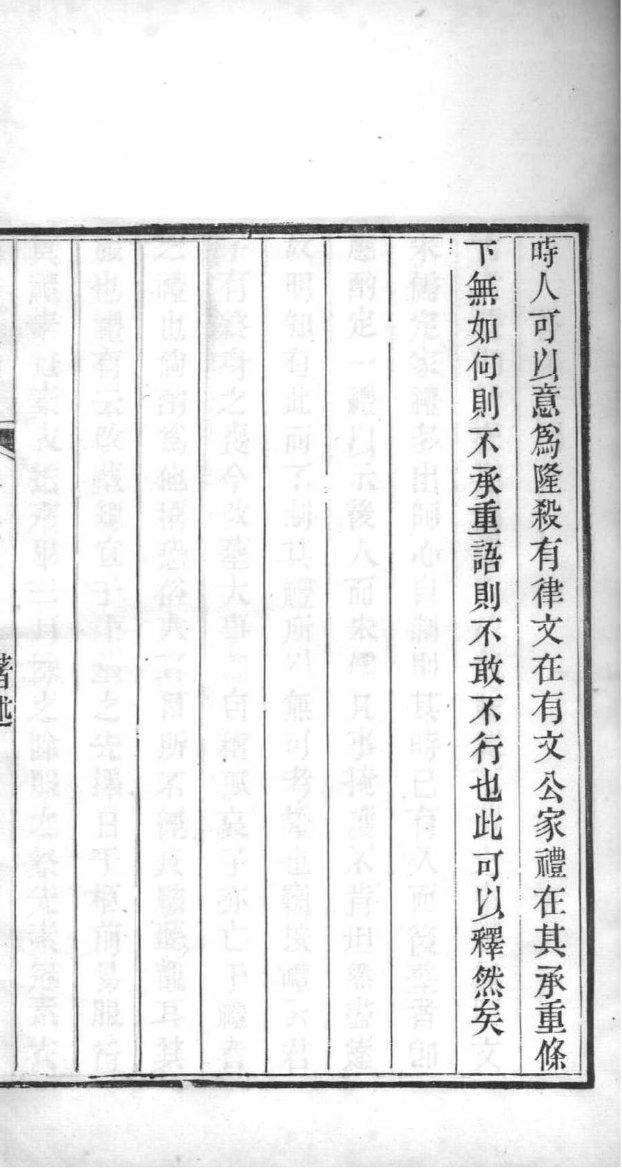 時人可以意爲隆殺有律文在有文公家禮在其承重條
下無如何則不承重語則不敢不行也此可以釋然矣